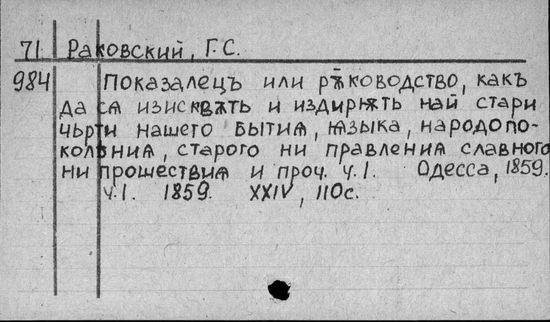 71 Раковский, Г.С.
984 Показалецъ или рѫководство, какъ
да сѧ изискватъ и издирѭтъ най стари
чьрти нашего бытиѧ, ѩзыка, народопо-
колѣниѧ, старого ни правлениѧ славного
ни прошествиѧ и проч. ч.1. Одесса, 1859.
ч.1. 1859. XXIV, 110с.